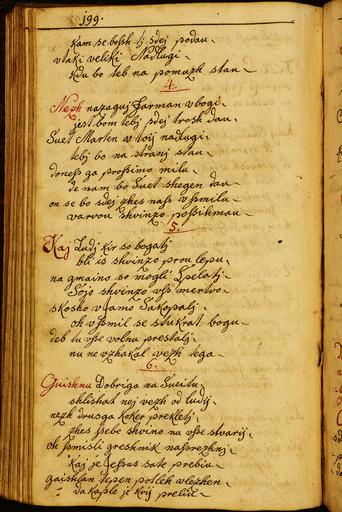 199.
kam se bossh ti sdej podau
vtaki veliki Nadlugi
kdu bo teb na pomuzh stau
4.
Nezh nazaguj farman vbogi
jest bom tebj sdej trosk dau
Suet Marten vtoij nadlugi
tebj bo na stranj stau
doness ga prossimo milu
de nam bo Suet shegen dau
on se bo sdej zhes nass vssmilu
varvou shvinzo possihmau
5.
Kaj Ludj kir so bogatj
bli is shvinzo prou lepu
na gmaino so mogli Spelatj
Sojo shvinzo vss mertvo
skosho vjamo Sakopalj
oh vssmil se stukrat bogu
deb tu vsse volnu prestalj
nu ne vzhakal vezh tega
6.
Guishnu Dobriga na Sueitu
shlishat nej vezh od ludij
nezh drusga koker prekletj
zhes ssebe shvino nu vsse stvarij
oh ssmisli greshnik nassrezhnj
Kaj je Jessus sate prebiu
gaishlan tepen potlek vlezhen
dakaple je krij preliu